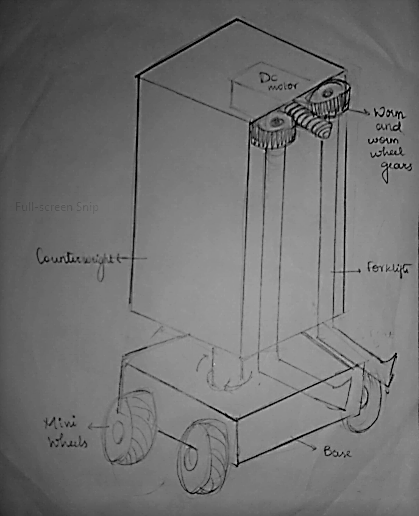 Dc
motor
Worm
and
worm
wheel
gears
Full-screen Snip
Counterweight
Forklift
Mini
Wheels
Base